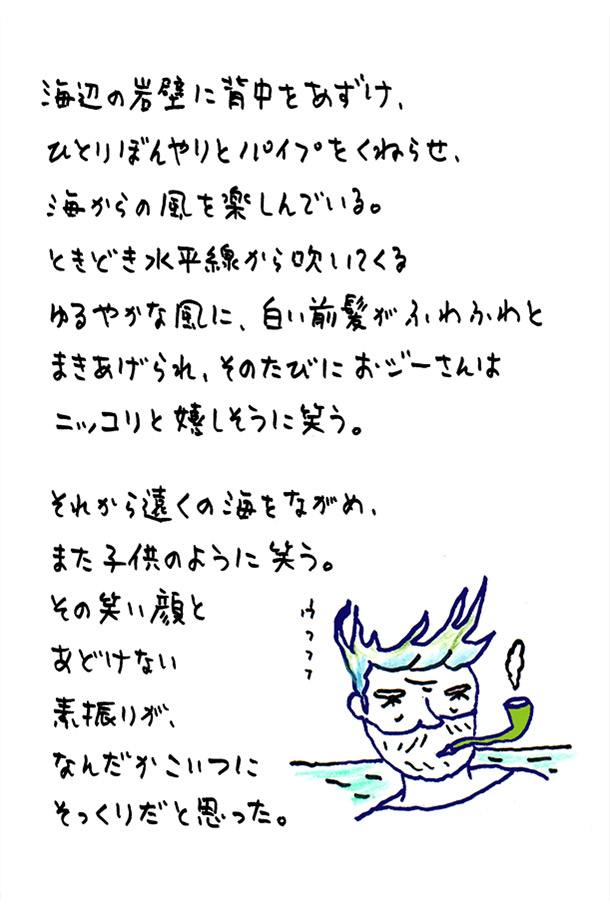 海辺の岩壁に背中をあずけ、
ひとりぼんやりとパイプをくねらせ、
海からの風を楽しんでいる。
ときどき水平線から吹いてくる
ゆるやかな風に、白い前髪がふわふわと
まきあげられ、そのたびにおジーさんは
ニッコリと嬉しそうに笑う。
それから遠くの海をながめ、
また子供のように笑う。
その笑い顔と
あどけない
素振りが、
なんだかこいつに
そっくりだと思った。